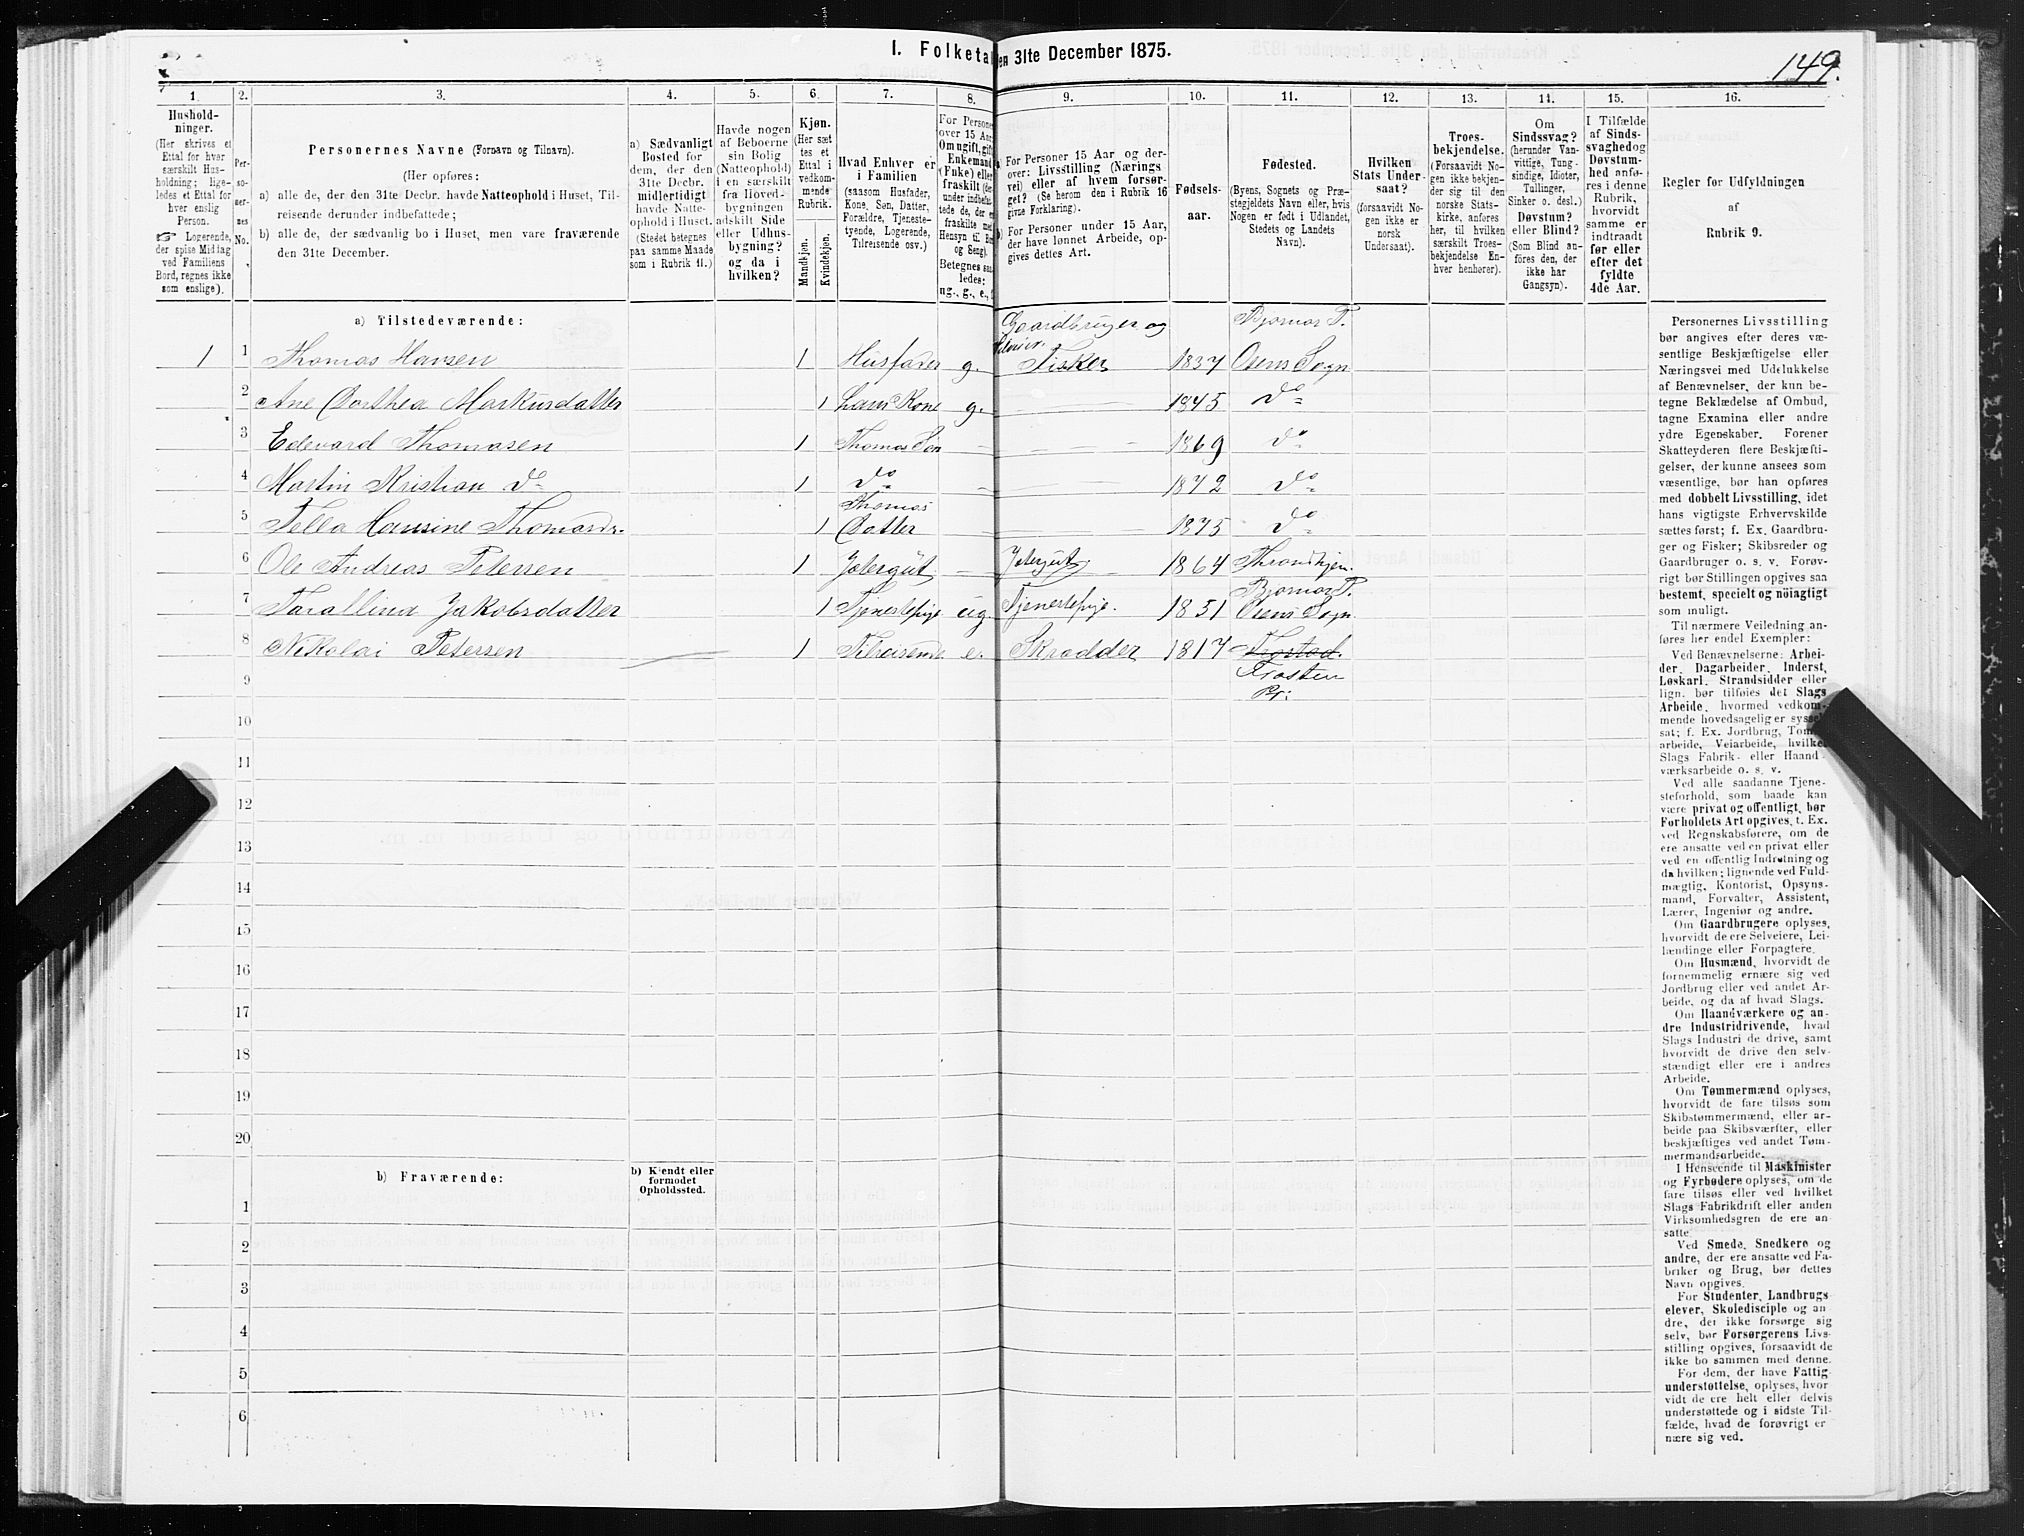 149.
I. Folketal den 31te December 1875.
1. 2. 3. 4. 5. 6. 7. 8. 9. 10. 11. 12. 13. 14. 15. 16.
Hushold-
ninger.
(Her skrives et
Ettal for hver
særskilt Hus-
holdning; lige-
ledes et Ettal for
hver enslig
Person.
☞ Logerende,
der spise Middag
ved Familiens
Bord, regnes ikke
som enslige).
Per-
so-
ner-
nes
No.
Personernes Navne (Fornavn og Tilnavn).
(Her opføres:
a) alle de, der den 31te Decbr. havde Natteophold i Huset, Til-
reisende derunder indbefattede;
b) alle de, der sædvanlig bo i Huset, men vare fraværende
den 31te December.
a) Sædvanligt
Bosted for
dem, der den
31te Decbr.
midlertidigt
havde Natte-
ophold i Huset.
(Stedet betegnes
paa samme Maade
som i Rubrik 11.)
Havde nogen
af Beboerne
sin Bolig
(Natteophold)
i en særskilt
fra Hoved-
bygningen
adskilt Side
eller Udhus-
bygning?
og da i
hvilken?
Kjøn.
(Her sæt
tes et
Ettal i
vedkom-
mende
Rubrik.
Mandkjøn.
Kvindekjøn.
Hvad Enhver er
i Familien
(saasom Husfader,
Kone, Søn, Datter,
Forældre, Tjeneste-
tyende, Logerende,
Tilreisende osv.)
For Personer
over 15 Aar
Om ugift, gift
Enkemand
(Enke) eller
fraskilt
Betegnes saa
ledes:
ug., g., e.,
a) For Personer 15 Aar og der-
over: Livsstilling (Nærings
vei) eller af hvem forsør-
get? (Se herom den i Rubrik 16
givne Forklaring).
b) For Personer under 15 Aar,
der have lønnet Arbeide, op-
gives dettes Art.
Fødsels-
aar.
Fødested.
(Byens, Sognets og Præ-
stegjeldets Navn eller, hvis
Nogen er født i Udlandet,
Stedets og Landets
Navn).
Hvilken
Stats Under-
saat?
(forsaavidt No-
gen ikke er
norsk
Undersaat).
Troes-
bekjendelse.
(Forsaavidt No-
gen ikke bekjen-
der sig til den
norske Stats-
kirke, anføres
her, til hvilken
særskilt Troes-
bekjendelse En-
hver henhører).
Om
Sindssvag?
(herunder Van-
vittige, Tung-
sindige, Idioter,
Tullinger,
Sinker o. desl.)
Døvstum?
eller Blind?
(Som Blind an-
føres den, der
ikke har
Gangsyn).
I Tilfælde
af Sinds-
svaghed og
Døvstum-
hed anfø-
res i denne
Rubrik,
hvorvidt
samme er
indtraadt
før eller
efter det
fyldte
4de Aar.
Regler for Udfyldningen
af
Rubrik 9.
a) Tilstedeværende:
Gaardbruger og Bjørnør P.
Selveier.
1 1 Thomas Hansen 1 Husfader g. Fisker 1837 Osens Sogn
2 Ane Dorthea Markusdatter 1 hans Kone g. 1845 do
3 Edevard Thomasen 1 Thomas Søn 1869 do
4 Martin Kristian do 1 do 1872 do
Thomas
5 Hansine 1 Datter 1875 do
6 Ole Andreas Petersen 1 Jætergut Jætergut 1864 Throndhjem.
Bjørnør P.
7 Jakobsdatter 1 Tjenestepige ug. Tjenestepige. 1851 Osens Sogn
8 Nikolai Petersen 1 Tilreisende e. Skrædder 1817
9 Frosten
Pr:
10
11
12
13
14
15
16
17
18
19
20
b) Fraværende:
b) Kjendt eller
formodet
Opholdssted.
1
2
3
4
5
6
Personernes Livsstilling
bør angives efter deres væ-
sentlige Beskjæftigelse eller
Næringsvei med Udelukkelse
af Benævnelser, der kun be-
tegne Beklædelse af Ombud,
tagne Examina eller andre
ydre Egenskaber. Forener
Skatteyderen flere Beskjæfti-
gelser, der kunne ansees som
væsentlige, bør han opføres
med dobbelt Livsstilling, idet
hans vigtigste Erhvervskilde
sættes først; f. Ex. Gaardbru-
ger og Fisker; Skibsreder og
Gaardbruger o. s. v. Forøv-
rigt bør Stillingen opgives saa
bestemt, specielt og nöiagtigt
som muligt.
Til nærmere Veiledning an-
føres her endel Exempler:
Ved Benævnelserne: Arbei-
der, Dagarbeider, Inderst,
Løskarl, Strandsidder eller
lign. bør tilføies det Slags
Arbeide, hvormed vedkom-
mende hovedsagelig er syssel
sat; f. Ex. Jordbrug, Tom
arbeide, Veiarbeide, hvilket
Slags Fabrik- eller Haand-
værksarbeide o. s. v.
Ved alle saadanne Tjene-
steforhold, som baade kan
være privat og offentligt, bør
Forholdets Art opgives, t. Ex.
ved Regnskabsførere, om de
ere ansatte ved en privat eller
ved en offentlig Indretning og
da hvilken; lignende ved Fuld-
mægtig, Kontorist, Opsyns-
mand, Forvalter, Assistent,
Lærer, Ingeniør og andre.
Om Gaardbrugere oplyses,
hvorvidt de ere Selveiere, Lei-
lændinge eller Forpagtere.
Om Husmænd, hvorvidt de
fornemmelig ernære sig ved
Jordbrug eller ved andet Ar-
beide, og da af hvad Slags.
Om Haandværkere og an-
dre Industridrivende, hvad
Slags Industri de drive, samt
hvorvidt de drive den selv-
stændigt eller ere i andres
Arbeide.
Om Tømmermænd oplyses,
hvorvidt de fare tilsøs som
Skibstømmermænd, eller ar-
beide paa Skibsværfter, eller
beskjæftiges ved andet Tøm-
mermandsarbeide.
I Henseende til Maskinister
og Fyrbødere oplyses, om de
fare tilsøs eller ved hvilket
Slags Fabrikdrift eller anden
Virksomhedsgren de ere an-
satte.
Ved Smede, Snedkere og
andre, der ere ansatte ved Fa-
briker og Brug, bør dettes
Navn opgives.
For Studenter, Landbrugs-
elever, Skoledisciple og an-
dre, der ikke forsørge sig
selv, bør Forsørgerens Livs-
stilling opgives, forsaavidt de
ikke bo sammen med denne.
For dem, der have Fattig-
understøttelse, oplyses, hvor
vidt de ere helt eller delvis
understøttede og i sidste Til-
fælde, hvad de forøvrigt er
nære sig ved.